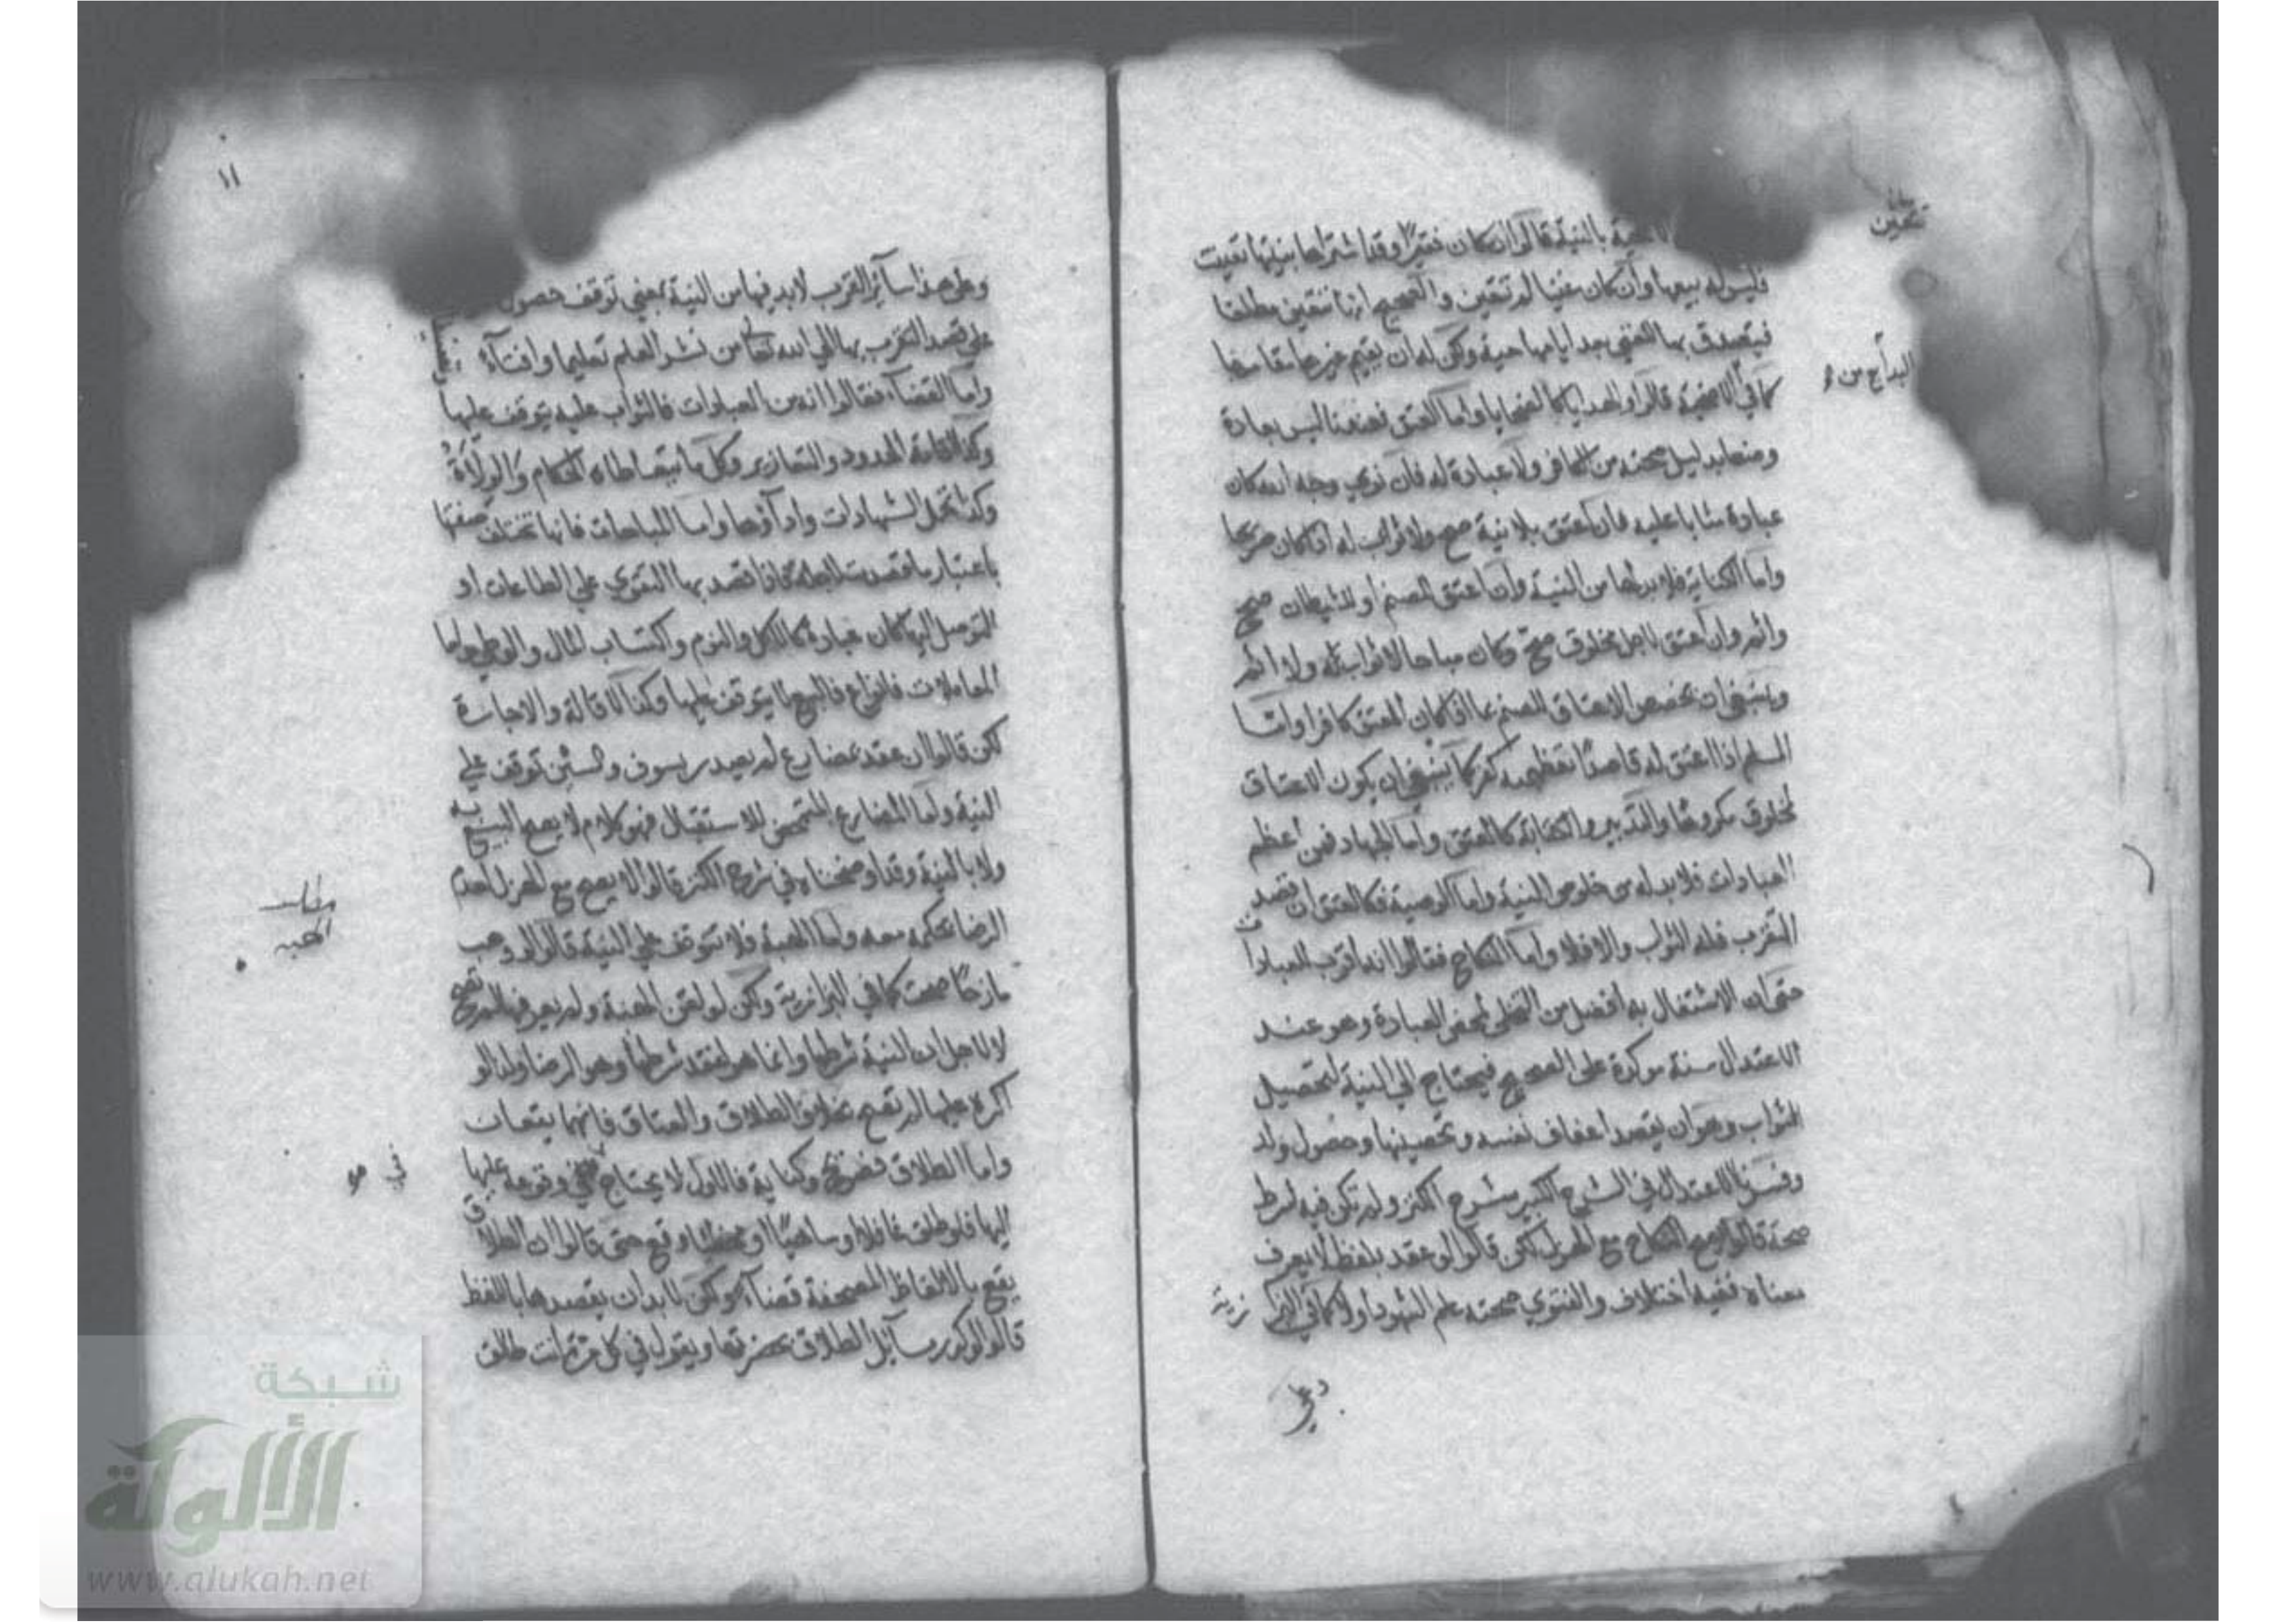 بالنية قالوا ان كان فقيرا وقد اشتراها بنيتها تعينت
فليس له بيعها وان كان غنيا لم تتعين والصحيح انها تتعين مطلقا
فيتصدق بها الغني بعد ايامها حية ولكن له ان يقيم غيرها مقامها
كما في الاضحية قالوا والهدايا كالضحايا واما العتق فعندنا ليس بعبادة
وضعا بدليل صحته من الكافر ولا عبادة له فان نوى وجه الله كان
عبادة مثابا عليه فان اعتق بلا نية صح ولا ثواب له اذا كان صريحا
واما الكناية فلا بد لها من النية وان اعتق للصنم او للشيطان صح
واثم وان اعتق لاجل مخلوق صح وكان مباحا لا ثواب له ولا اثم
وينبغي ان يخصص الاعتاق للصنم بما اذا كان المعتق كافرا واما
المسلم اذا اعتق له قاصدا تعظيمه كفر كما ينبغي ان يكون الاعتاق
لمخلوق مكروها والتدبير والكتابة كالعتق واما الجهاد فمن اعظم
العبادات فلا بد له من خلوص النية واما الوصية فكالعتق ان قصد
التقرب فله الثواب والا فلا واما النكاح فقالوا انه اقرب للعبادات
حتى ان الاشتغال به افضل من التخلي لمحض العبادة وهو عند
الاعتدال سنة موكدة على الصحيح فيحتاج الى النية لتحصيل
الثواب وهو ان يقصد اعفاف نفسه وتحصينها وحصول ولد
وفسرنا الاعتدال في الشرح الكبير شرح الكنز ولم تكن فيه شرط
صحة قالوا يصح النكاح مع الهزل لكن قالوا لو عقد بلفظ لا يعرف
معناه ففيه اختلاف والفتوى صحته علم الشهود او لا كما في البزازية
وعلى
تتعين
البدايع من
١١
وعلى هذا ساير القرب لا بد فيها من النية بمعنى توقف حصول
على قصد التقرب بها الى الله تعالى من نشر العلم تعليما وافتاء
واما القضاء فقالوا انه من العبادات فالثواب عليه يتوقف عليها
وكذا اقامة الحدود والتعازير وكل ما يتعاطاه الحكام والولاة
وكذا تحمل الشهادات واداؤها واما المباحات فانها تختلف صفتها
باعتبار ما قصدت لاجله فاذا قصد بها التقوي على الطاعات او
التوصل اليها كان عبادة كالاكل والنوم واكتساب المال والوطي واما
المعاملات فانواع فالبيع لا يتوقف عليها وكذا الاقالة والاجارة
لكن قالوا ان عقد بمضارع لم يصدر بسوف والسين توقف على
النية واما المضارع المتمحض للاستقبال فهو كالامر لا يصح البيع به
ولا بالنية وقد اوضحناه في شرح الكنز قالوا لا يصح مع الهزل لعدم
الرضا بحكمه معه واما الهبة فلا تتوقف على النية قالوا لو وهب
مازحا صحت كما في البزازية ولكن لو لقن الهبة ولم يعرفها لم تصح
لا لاجل ان النية شرطها وانما هو لفقد شرطها وهو الرضا ولذا لو
اكره عليها لم تصح بخلاف الطلاق والعتاق فانهما يقعان
واما الطلاق فصريح وكناية فالاول لا يحتاج في وقوعه عليها
اليها فلو طلق غافلا او ساهيا او مخطيا وقع حتى قالوا ان الطلاق
يقع بالالفاظ المصحفة قضاء ولكن لا بد ان يقصدها باللفظ
قالوا لو كرر مسايل الطلاق بحضرتها ويقول في كل مرة انت طالق
مطلب
الهبة
في
شبكة
الألوكة
www.alukah.net